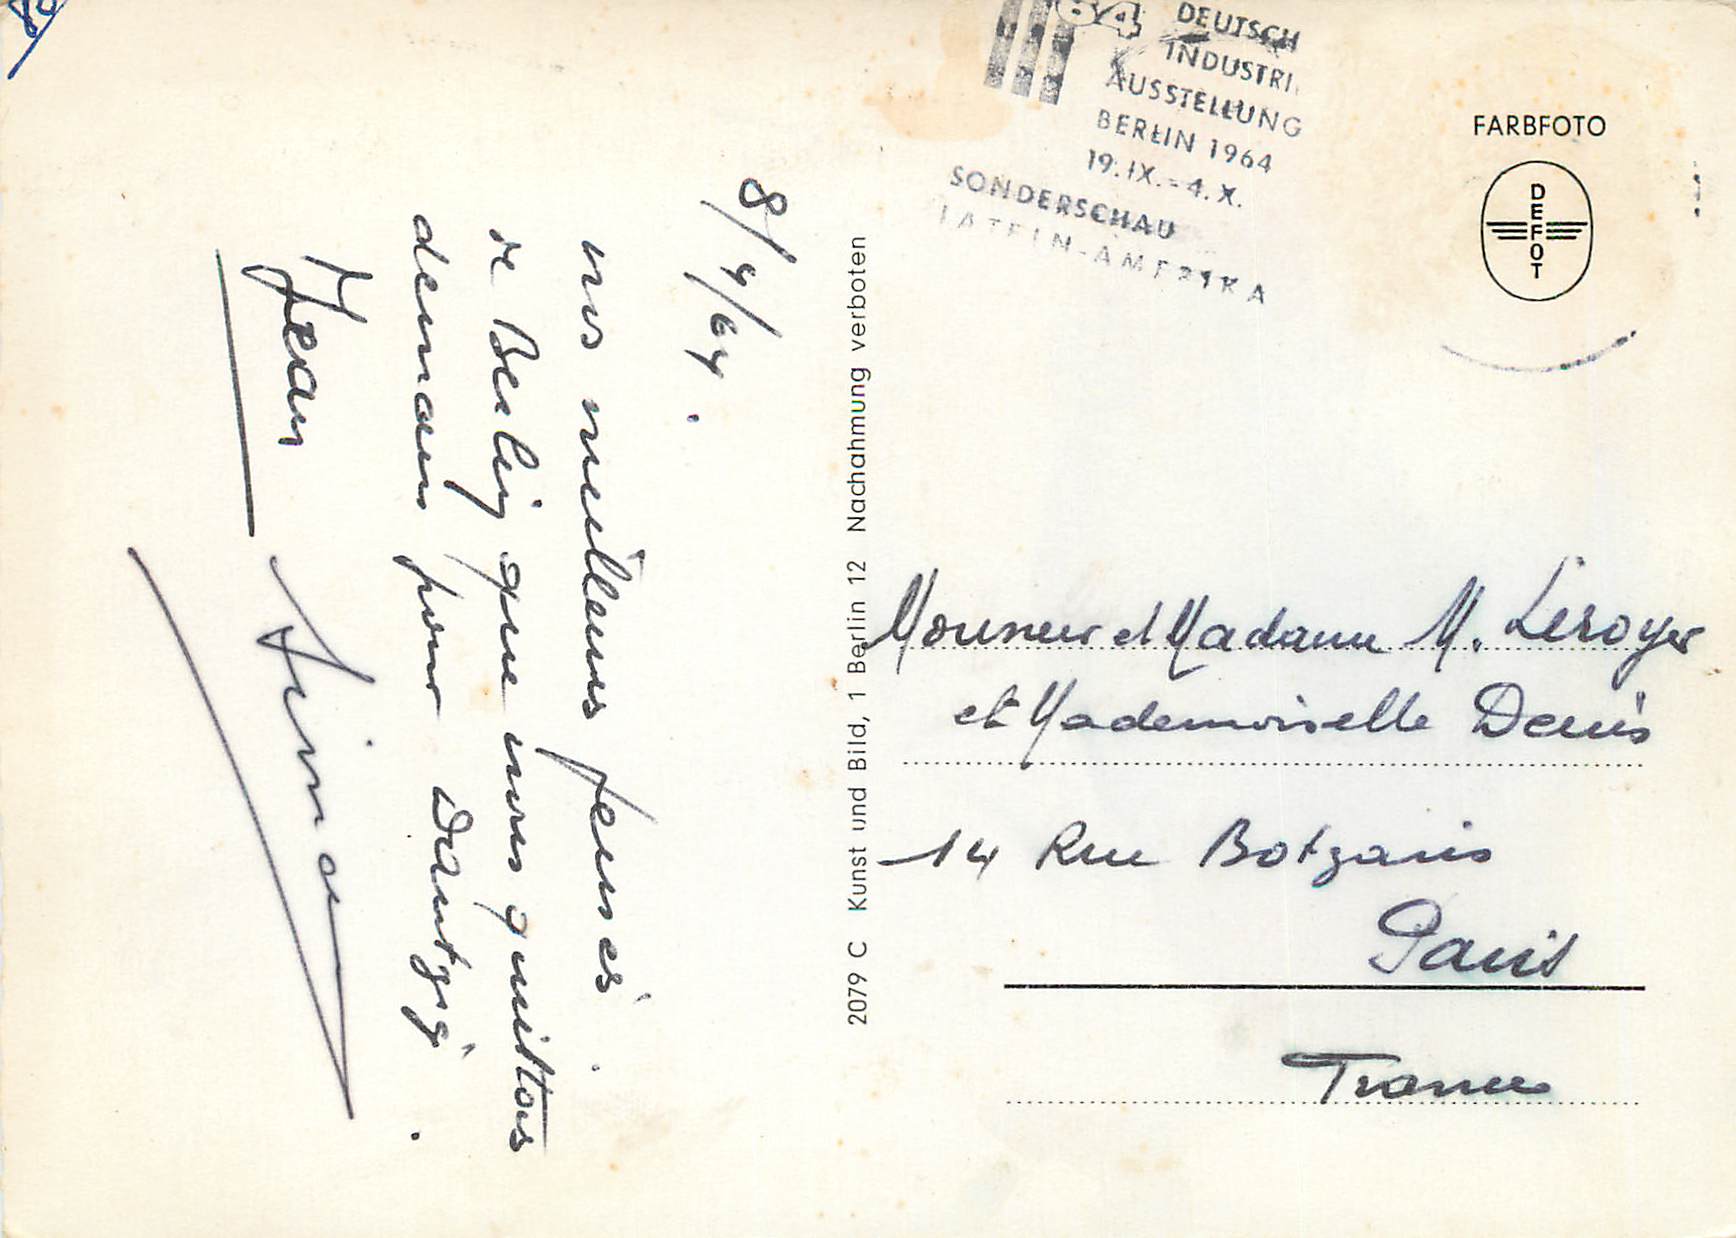 64 DEUTSCH
INDUSTRI
AUSSTELLUNG
BERLIN 1964
19. IX. - 4. X.
SONDERSCHAU
LATEIN-AMERIKA
FARBFOTO
DEFOT
8/9/64.
nos meilleures pensées.
de Berlin que nous quittons
demain pour Dantzig.
Jean
2079 C Kunst und Bild, 1 Berlin 12 Nachahmung verboten
Monsieur et Madame M. Leroyer
et Mademoiselle Denis
14 Rue Botzaris
Paris
France